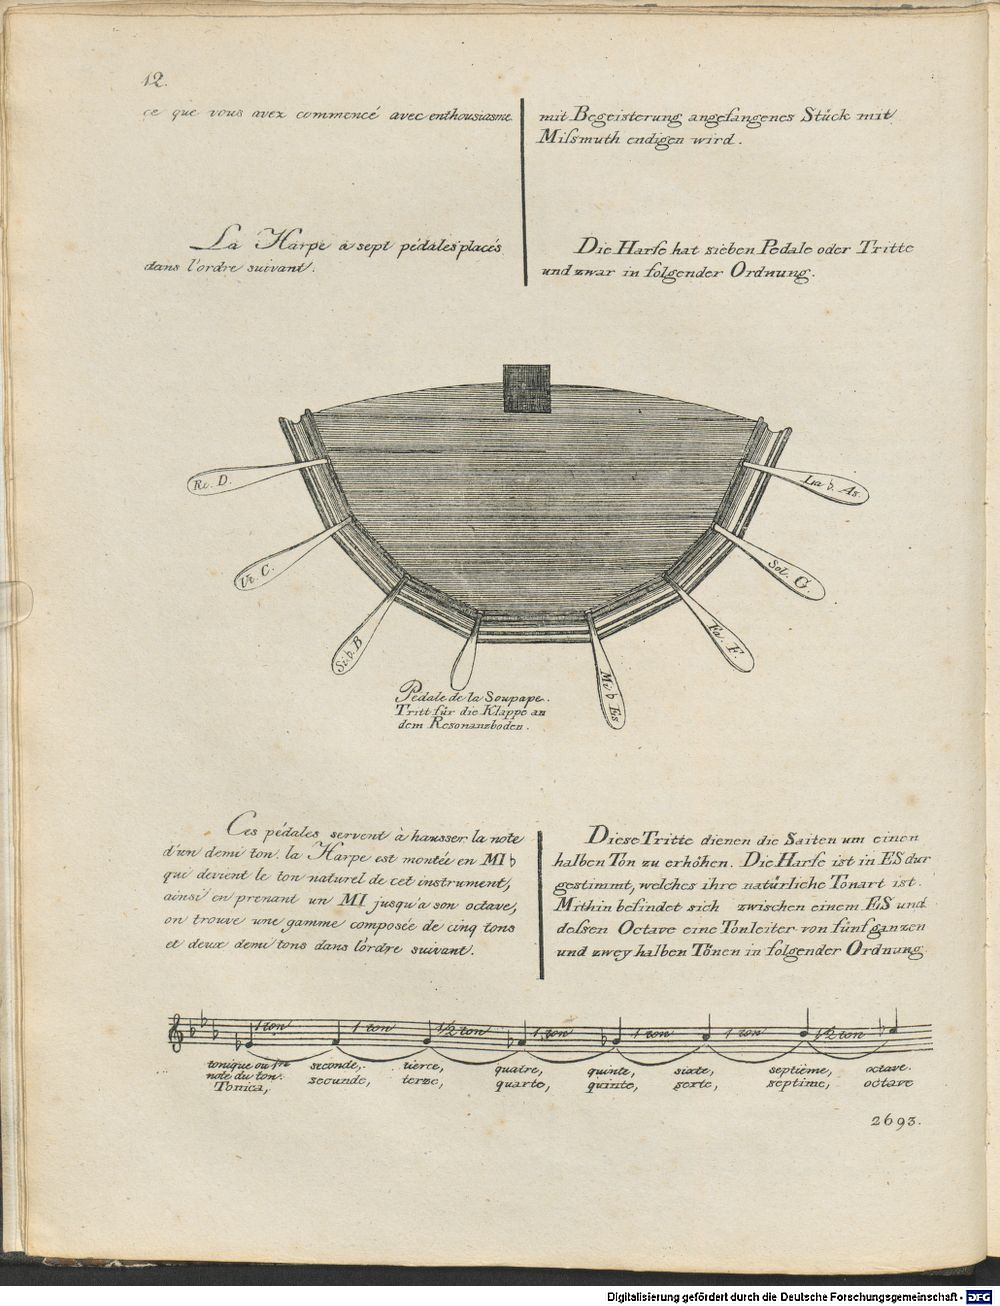 12.
ce que vous avez commencé avec enthousiasme.
mit Begeisterung angefangenes Stück mit
Miſsmuth endigen wird.
La Harpe a sept pédales placés
dans l'ordre suivant.
Die Harfe hat sieben Pedale oder Tritte
und zwar in folgender Ordnung.
Re. D.
Ut. C.
Si♭. B
Mi♭ Es
Fa. F.
Sol. G.
La♭. As.
Pédale de la Soupape.
Tritt für die Klappe an
dem Resonanzboden.
Ces pédales servent à hausser la note
d'un demi ton. la Harpe est montée en MI♭
qui devient le ton naturel de cet instrument,
ainsi en prenant un MI jusqu'a son octave,
on trouve une gamme composée de cinq tons
et deux demi tons dans l'ordre suivant.
Diese Tritte dienen die Saiten um einen
halben Ton zu erhöhen. Die Harfe ist in ES dur
gestimmt, welches ihre natürliche Tonart ist.
Mithin befindet sich zwischen einem ES und
deſsen Octave eine Tonleiter von fünf ganzen
und zwey halben Tönen in folgender Ordnung
1 ton 1 ton 1/2 ton 1 ton 1 ton 1 ton 1/2 ton
tonique ou 1re seconde, tierce, quatre, quinte, sixte, septiéme, octave.
note du ton.
Tonica, secunde, terze, quarte, quinte, sexte, septime, octave
2693.
Digitalisierung gefördert durch die Deutsche Forschungsgemeinschaft - DFG